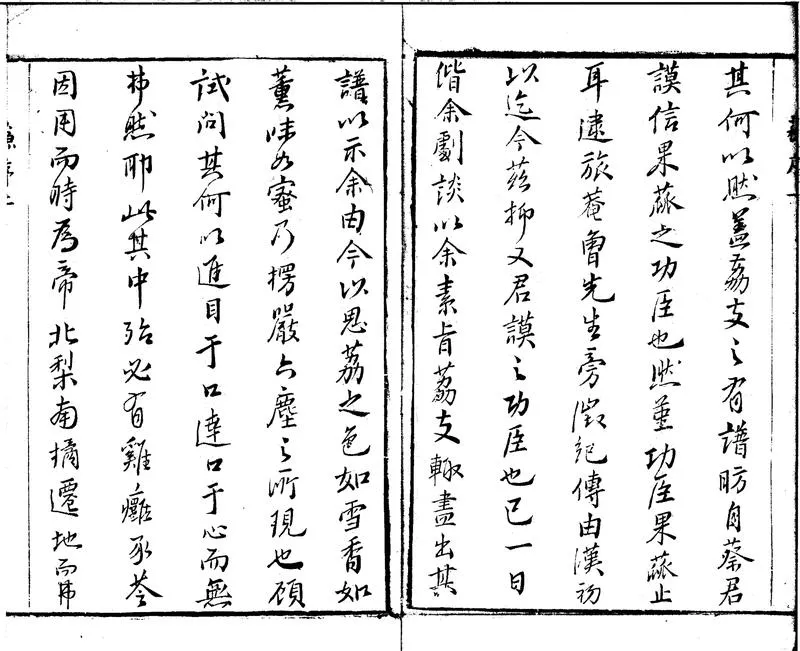 其何以然蓋荔支之有譜昉自蔡君
謨信果蓏之功臣也然堇功臣果蓏止
耳逮旅菴先生旁徵紀傳由漢初
以迄今茲抑又君謨之功臣也已一日
偕余劇談以余素旨荔支輒盡出其
譜以示余由今以思荔之色如雪香如
薰味如蜜乃楞嚴六塵之所現也顧
試問其何以進目于口達口于心而無
拂然耶此其中殆必有雞癰豕苓
因用而時為帝北梨南橘遷地而弗